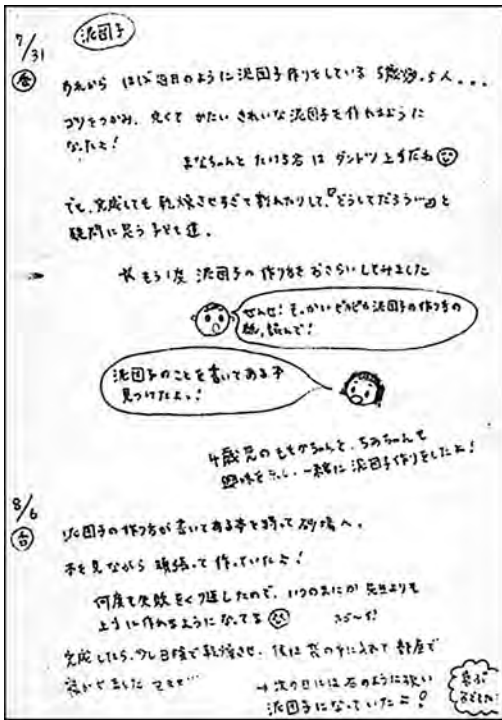 泥団子
7/31
あれから ほぼ毎日のように泥団子作りをしている 5歳児、5人...
コツをつかみ、丸くて かたい きれいな泥団子を作れるように
なったよ!
まなちゃんと たける君 は ダントツ 上手だね
でも、完成しても 乾燥させすぎて割れたりして、『どうしてだろう…』と
疑問に思う子ども達。
もう1度 泥団子の作り方を おさらいしてみました
せんせ! 泥団子の作り方の
紙、読んで!
泥団子のことを書いてある本
見つけたよ!
4歳児のももかちゃんと、ちみちゃんも
興味を示し、一緒に泥団子作りをしたよ!
8/6
泥団子の作り方が書いてある本を持って砂場へ。
本を見ながら 頑張って作っていたよ!
何度も失敗をくり返したので、いつのまにか 先生よりも
上手に作れるようになってる
完成したら、少し日陰で乾燥させ、後は 袋の中に入れて 部屋で
次の日には石のように硬い
泥団子になっていた